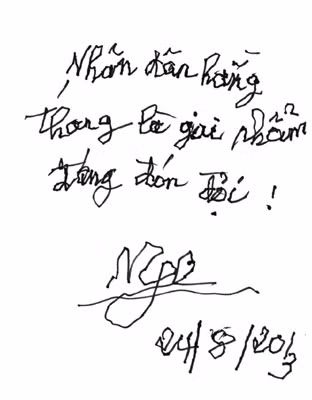 Nhân dân hằng
tháng là giai phẩm
đáng đón đợi !
Ngọ
24/8/2013